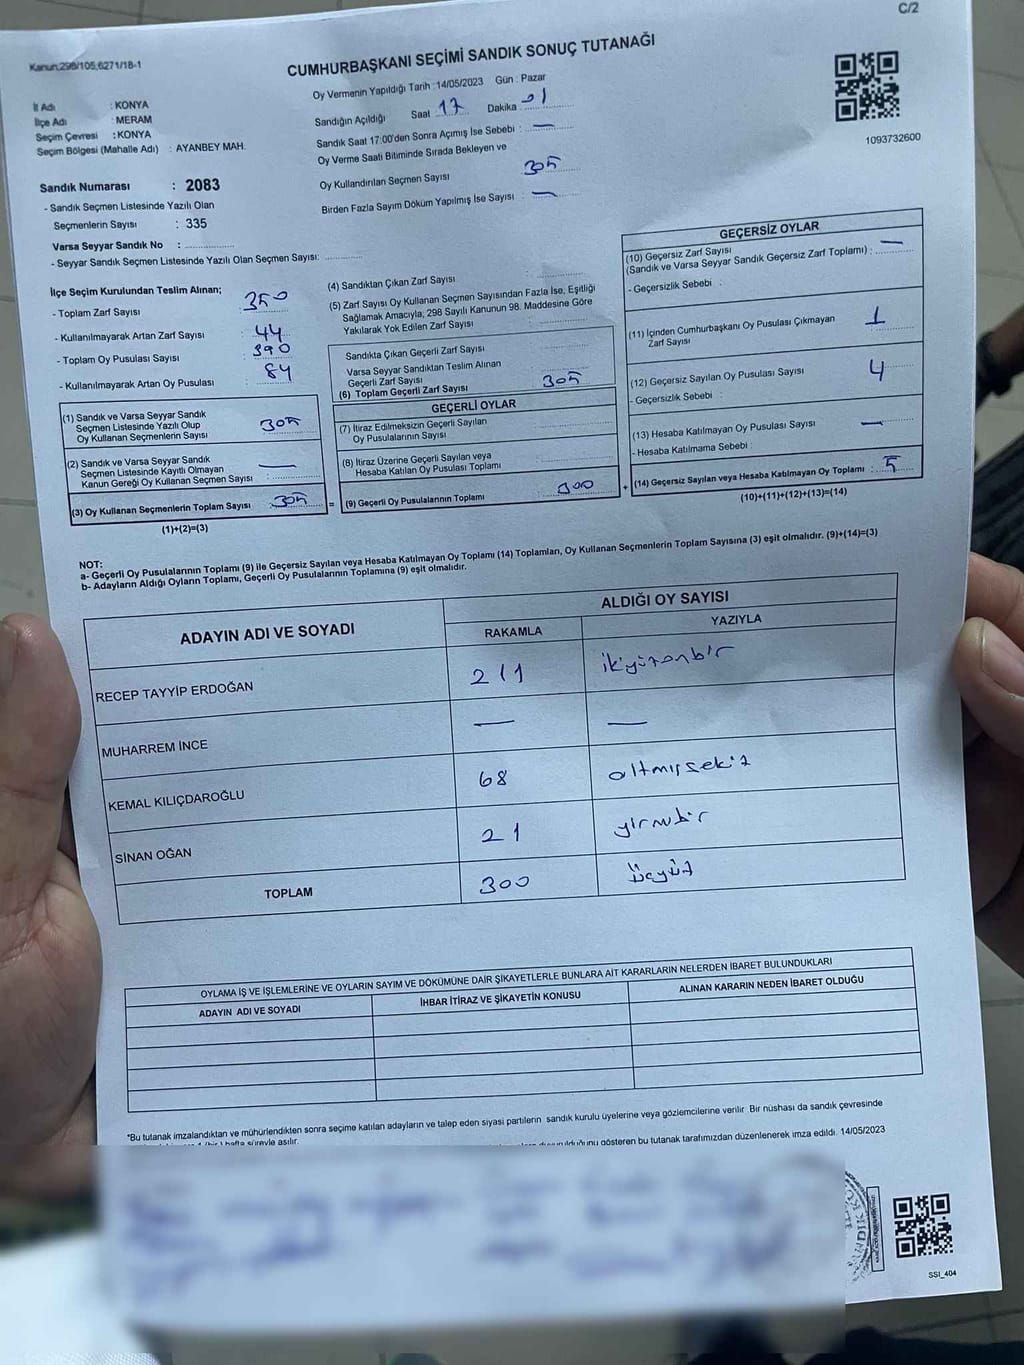 C/2
Kanun:298/105;6271/18-1
CUMHURBAŞKANI SEÇİMİ SANDIK SONUÇ TUTANAĞI
İl Adı : KONYA
İlçe Adı : MERAM
Seçim Çevresi : KONYA
Seçim Bölgesi (Mahalle Adı) : AYANBEY MAH.
Oy Vermenin Yapıldığı Tarih :14/05/2023 Gün : Pazar
Sandığın Açıldığı Saat 17 Dakika 01
Sandık Saat 17:00'den Sonra Açımış İse Sebebi : —
Oy Verme Saati Bitiminde Sırada Bekleyen ve
Oy Kullandırılan Seçmen Sayısı 305
Birden Fazla Sayım Döküm Yapılmış İse Sayısı : —
1093732600
Sandık Numarası : 2083
- Sandık Seçmen Listesinde Yazılı Olan
Seçmenlerin Sayısı : 335
Varsa Seyyar Sandık No :
- Seyyar Sandık Seçmen Listesinde Yazılı Olan Seçmen Sayısı:
İlçe Seçim Kurulundan Teslim Alınan;
- Toplam Zarf Sayısı : 350
- Kullanılmayarak Artan Zarf Sayısı : 44
- Toplam Oy Pusulası Sayısı : 390
- Kullanılmayarak Artan Oy Pusulası : 84
(1) Sandık ve Varsa Seyyar Sandık
Seçmen Listesinde Yazılı Olup
Oy Kullanan Seçmenlerin Sayısı : 305
(2) Sandık ve Varsa Seyyar Sandık
Seçmen Listesinde Kayıtlı Olmayan
Kanun Gereği Oy Kullanan Seçmen Sayısı : —
(3) Oy Kullanan Seçmenlerin Toplam Sayısı : 305
(1)+(2)=(3)
=
(4) Sandıktan Çıkan Zarf Sayısı :
(5) Zarf Sayısı Oy Kullanan Seçmen Sayısından Fazla İse, Eşitliği
Sağlamak Amacıyla, 298 Sayılı Kanunun 98. Maddesine Göre
Yakılarak Yok Edilen Zarf Sayısı :
Sandıkta Çıkan Geçerli Zarf Sayısı
Varsa Seyyar Sandıktan Teslim Alınan
Geçerli Zarf Sayısı
(6) Toplam Geçerli Zarf Sayısı 305
GEÇERLİ OYLAR
(7) İtiraz Edilmeksizin Geçerli Sayılan
Oy Pusulalarının Sayısı
(8) İtiraz Üzerine Geçerli Sayılan veya
Hesaba Katılan Oy Pusulası Toplamı
(9) Geçerli Oy Pusulalarının Toplamı : 300
+
GEÇERSİZ OYLAR
(10) Geçersiz Zarf Sayısı
(Sandık ve Varsa Seyyar Sandık Geçersiz Zarf Toplamı) : —
- Geçersizlik Sebebi :
(11) İçinden Cumhurbaşkanı Oy Pusulası Çıkmayan
Zarf Sayısı 1
(12) Geçersiz Sayılan Oy Pusulası Sayısı : 4
- Geçersizlik Sebebi :
(13) Hesaba Katılmayan Oy Pusulası Sayısı : —
- Hesaba Katılmama Sebebi :
(14) Geçersiz Sayılan veya Hesaba Katılmayan Oy Toplamı : 5
(10)+(11)+(12)+(13)=(14)
NOT:
a- Geçerli Oy Pusulalarının Toplamı (9) ile Geçersiz Sayılan veya Hesaba Katılmayan Oy Toplamı (14) Toplamları, Oy Kullanan Seçmenlerin Toplam Sayısına (3) eşit olmalıdır. (9)+(14)=(3)
b- Adayların Aldığı Oyların Toplamı, Geçerli Oy Pusulalarının Toplamına (9) eşit olmalıdır.
ADAYIN ADI VE SOYADI
ALDIĞI OY SAYISI
RAKAMLA YAZIYLA
RECEP TAYYİP ERDOĞAN 211 ikiyüzonbir
MUHARREM İNCE — —
KEMAL KILIÇDAROĞLU 68 altmışsekiz
SİNAN OĞAN 21 yirmibir
TOPLAM 300 üçyüz
OYLAMA İŞ VE İŞLEMLERİNE VE OYLARIN SAYIM VE DÖKÜMÜNE DAİR ŞİKAYETLERLE BUNLARA AİT KARARLARIN NELERDEN İBARET BULUNDUKLARI
ADAYIN ADI VE SOYADI İHBAR İTİRAZ VE ŞİKAYETİN KONUSU ALINAN KARARIN NEDEN İBARET OLDUĞU
*Bu tutanak imzalandıktan ve mühürlendikten sonra seçime katılan adayların ve talep eden siyasi partilerin sandık kurulu üyelerine veya gözlemcilerine verilir. Bir nüshası da sandık çevresinde
1 (bir) hafta süreyle asılır.
gösteren bu tutanak tarafımızdan düzenlenerek imza edildi. 14/05/2023
SSI_404